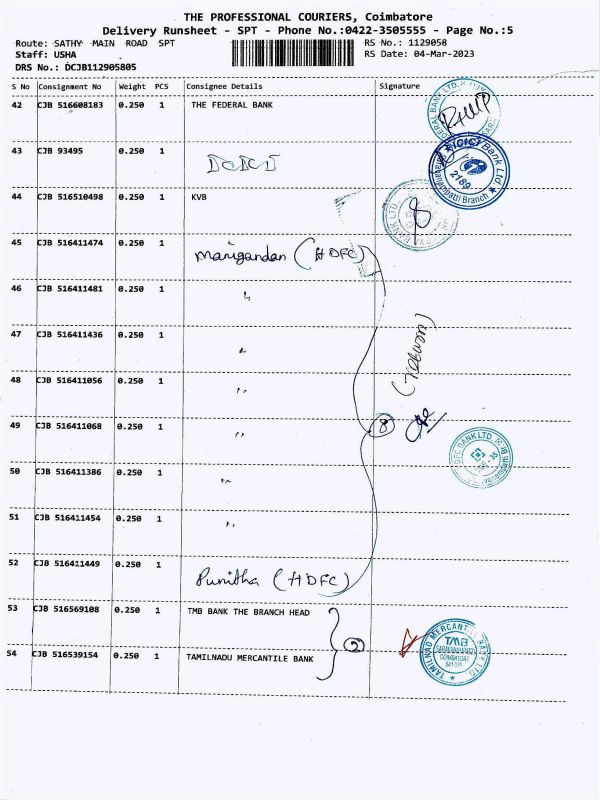 THE PROFESSIONAL COURIERS, Coimbatore
Delivery Runsheet - SPT - Phone No.:0422-3505555 - Page No.:5
Route: SATHY MAIN ROAD SPT RS No.: 1129058
Staff: USHA RS Date: 04-Mar-2023
DRS No.: DCJB112905805
S No Consignment No Weight PCS Consignee Details Signature
42 CJB 516608183 0.250 1 THE FEDERAL BANK
43 CJB 93495 0.250 1 ICICI
ICICI Bank Ltd
2189
44 CJB 516510498 0.250 1 KVB
45 CJB 516411474 0.250 1 Manigandan (HDFC)
46 CJB 516411481 0.250 1 "
47 CJB 516411436 0.250 1 "
48 CJB 516411056 0.250 1 "
49 CJB 516411068 0.250 1 " 8
50 CJB 516411386 0.250 1 "
51 CJB 516411454 0.250 1 "
52 CJB 516411449 0.250 1 Punitha (HDFC)
53 CJB 516569108 0.250 1 TMB BANK THE BRANCH HEAD
54 CJB 516539154 0.250 1 TAMILNADU MERCANTILE BANK 2
TAMILNAD MERCANTILE BANK LTD.
TMB
COIMBATORE